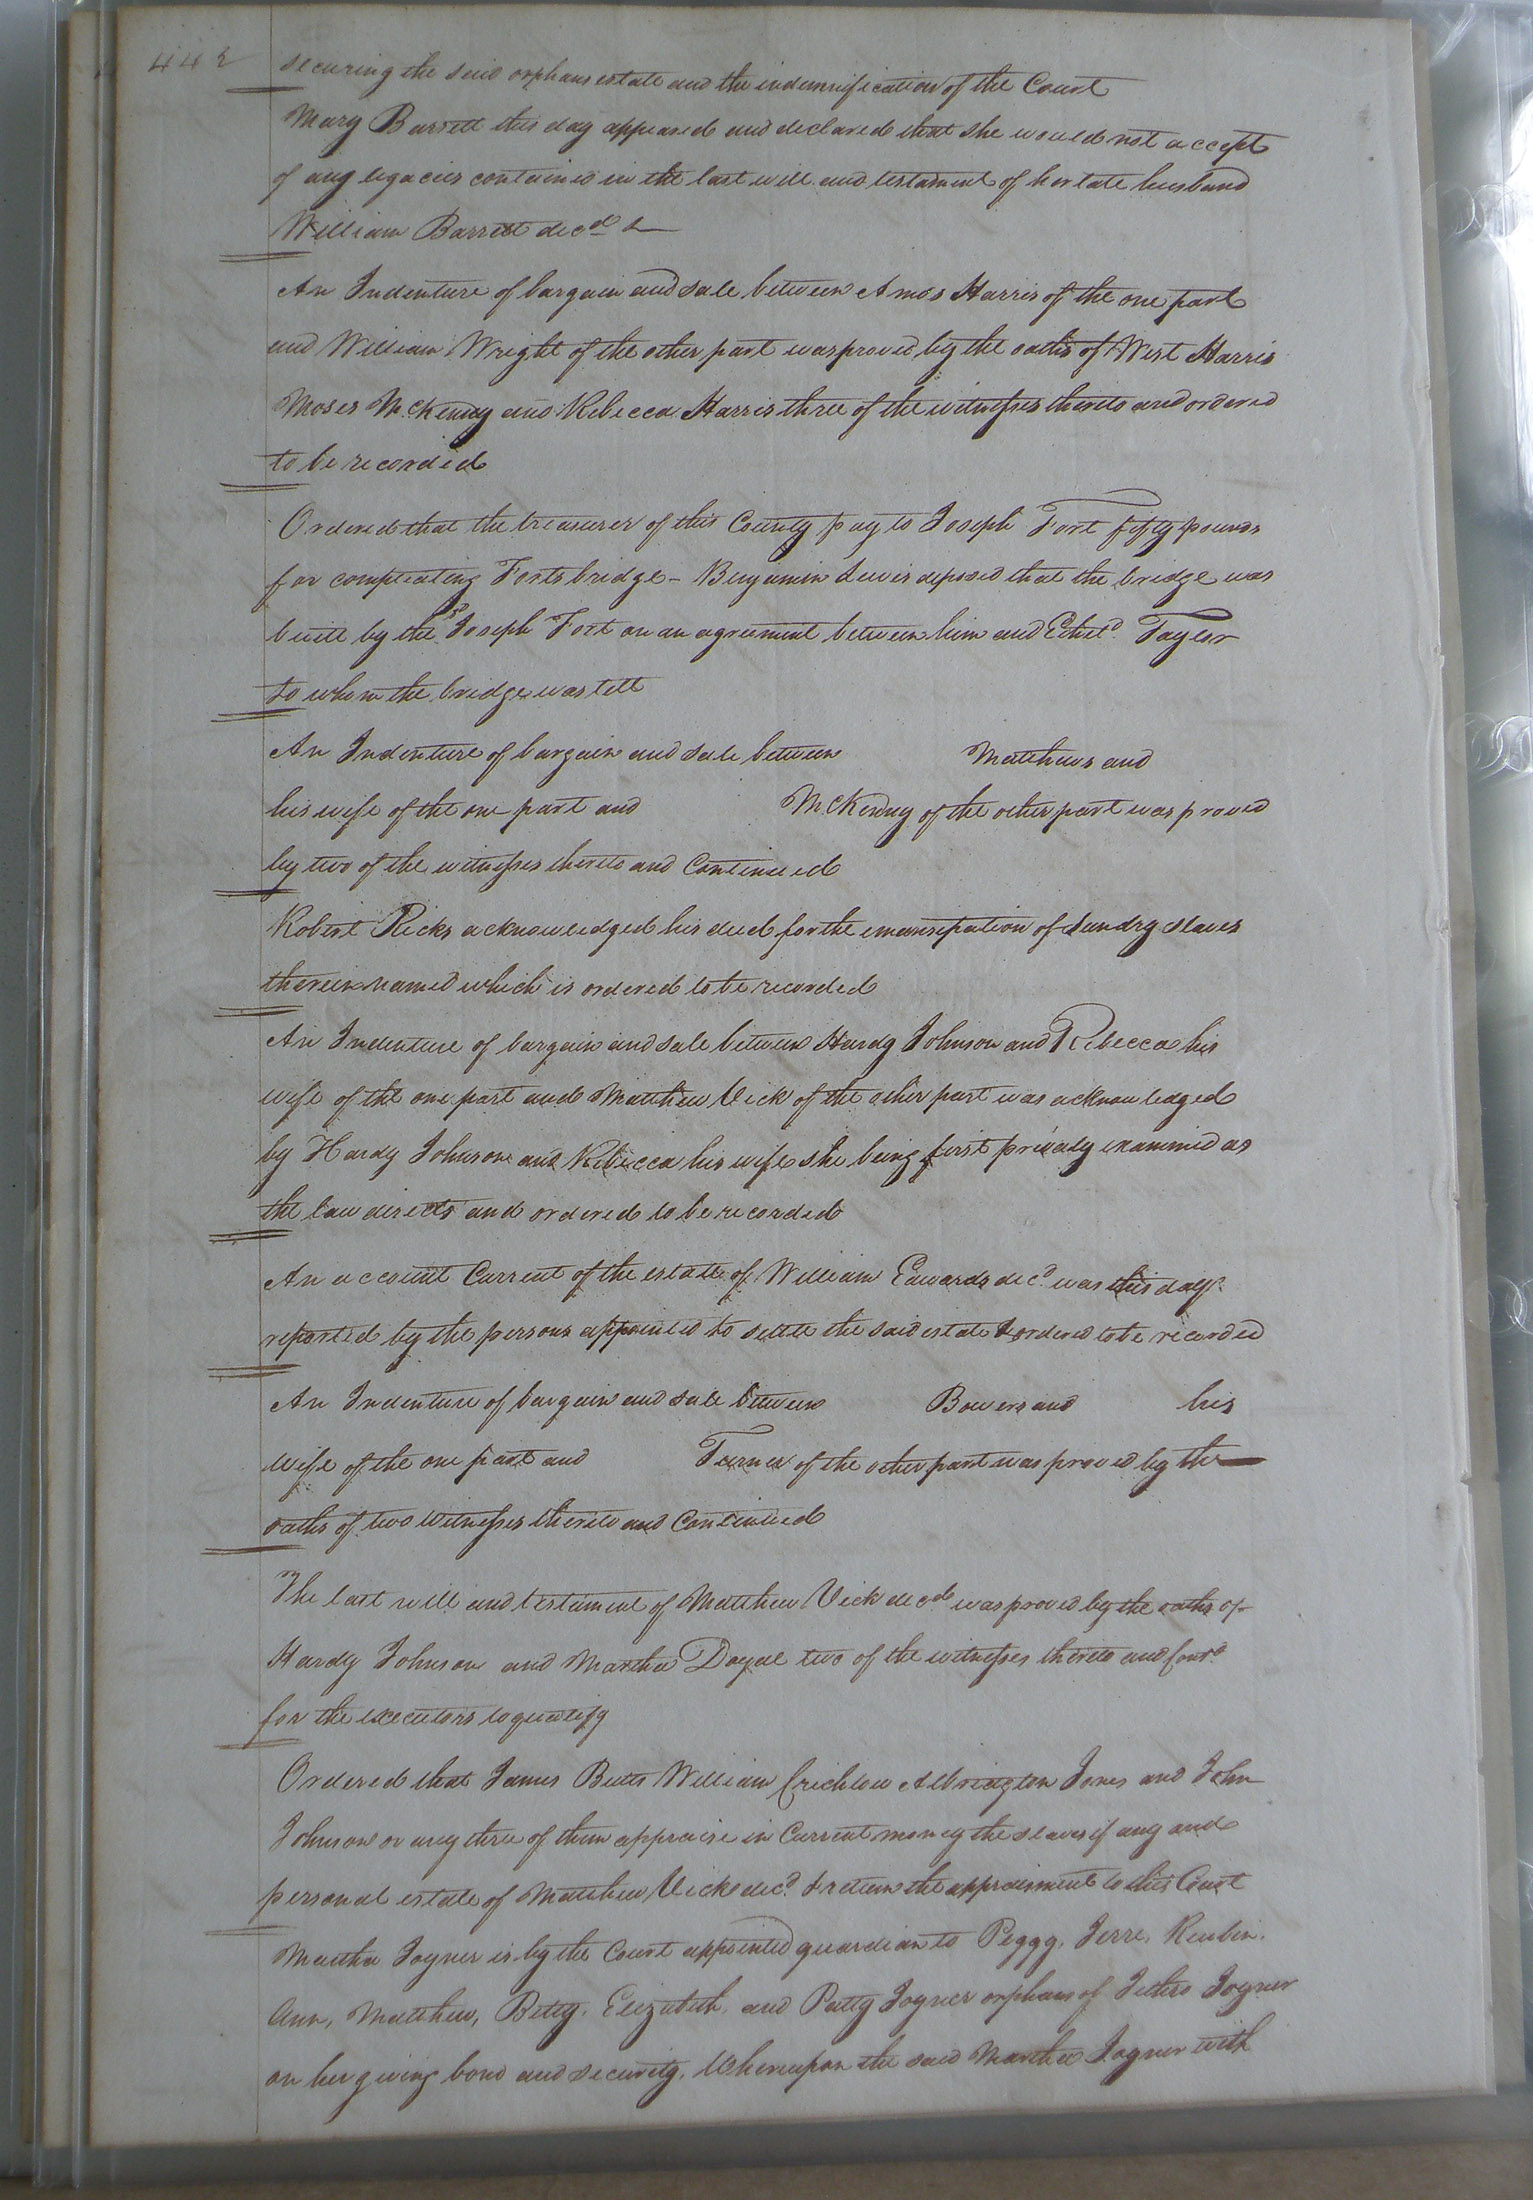 442
securing the said orphans estate and the indemnification of the Court
Mary Barrett this day appeared and declared that she would not accept
of any legacies contained in the last will and testament of her late husband
William Barrett decd &
An Indenture of bargain and sale between Amos Harris of the one part
and William Wright of the other part was proved by the oaths of West Harris
Moses McKenny and Rebecca Harris three of the witnesses thereto and ordered
to be recorded
Ordered that the treasurer of this County pay to Joseph Fort fifty pounds
for compleating Forts bridge - Benjamin Lewis deposed that the bridge was
built by the sd Joseph Fort on an agreement between him and Etheld. Taylor
to whom the bridge was lett
An Indenture of bargain and sale between Matthews and
his wife of the one part and McKenny of the other part was proved
by two of the witnesses thereto and Continued
Robert Ricks acknowledged his deed for the emancipation of Sundry slaves
therein named which is ordered to be recorded
An Indenture of bargain and sale between Hardy Johnson and Rebecca his
wife of the one part and Matthew Vick of the other part was acknowledged
by Hardy Johnson and Rebecca his wife she being first privaly examined as
the law directs and ordered to be recorded
An account Current of the estate of William Edwards decd. was this day
reported by the persons appointed to settle the said estate & ordered to be recorded
An Indenture of bargain and sale between Bowers and his
wife of the one part and Turner of the other part was proved by the
oaths of two witnesses thereto and Continued
The last will and testament of Matthew Vick decd was proved by the oaths of
Hardy Johnson and Martha Doyal two of the witnesses thereto and Contd.
for the executors to qualify
Ordered that James Butts William Crichlow Albrington Jones and John
Johnson or any three of them appraise in Current money the slaves if any and
personal estate of Matthew Vick decd. & return the appraisment to this Court
Martha Joyner is by the Court appointed guardian to Peggy, Jerre, Reubin,
Ann, Matthew, Betsy, Elizabeth, and Patty Joyner orphans of Jethro Joyner
on her giving bond and security, Whereupon the said Martha Joyner with